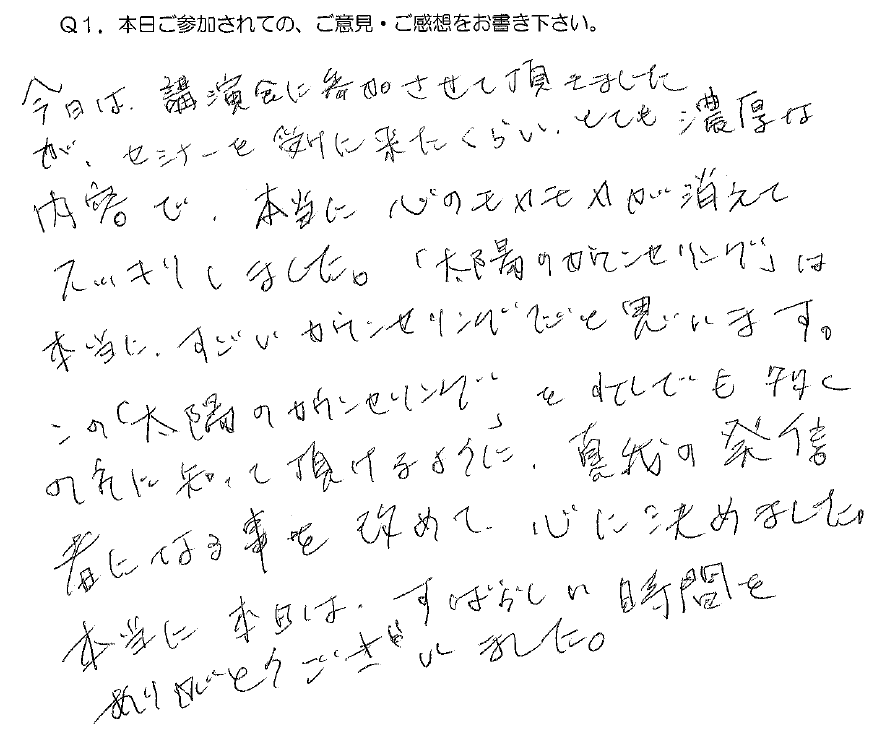 Q1. 本日ご参加されての、ご意見・ご感想をお書き下さい。
今日は、講演会に参加させて頂きました
が、セミナーを受けに来たくらい、とても濃厚な
内容。で、本当に心のモヤモヤが消えて
スッキリしました。「太陽のカウンセリング」は
本当に、すごいカウンセリングだと思います。
この「太陽のカウンセリング」を少しでも多く
の方に知って頂けるように、真我の発信
者になる事を改めて、心に決めました。
本当に本日は、すばらしい時間を
ありがとうございました。